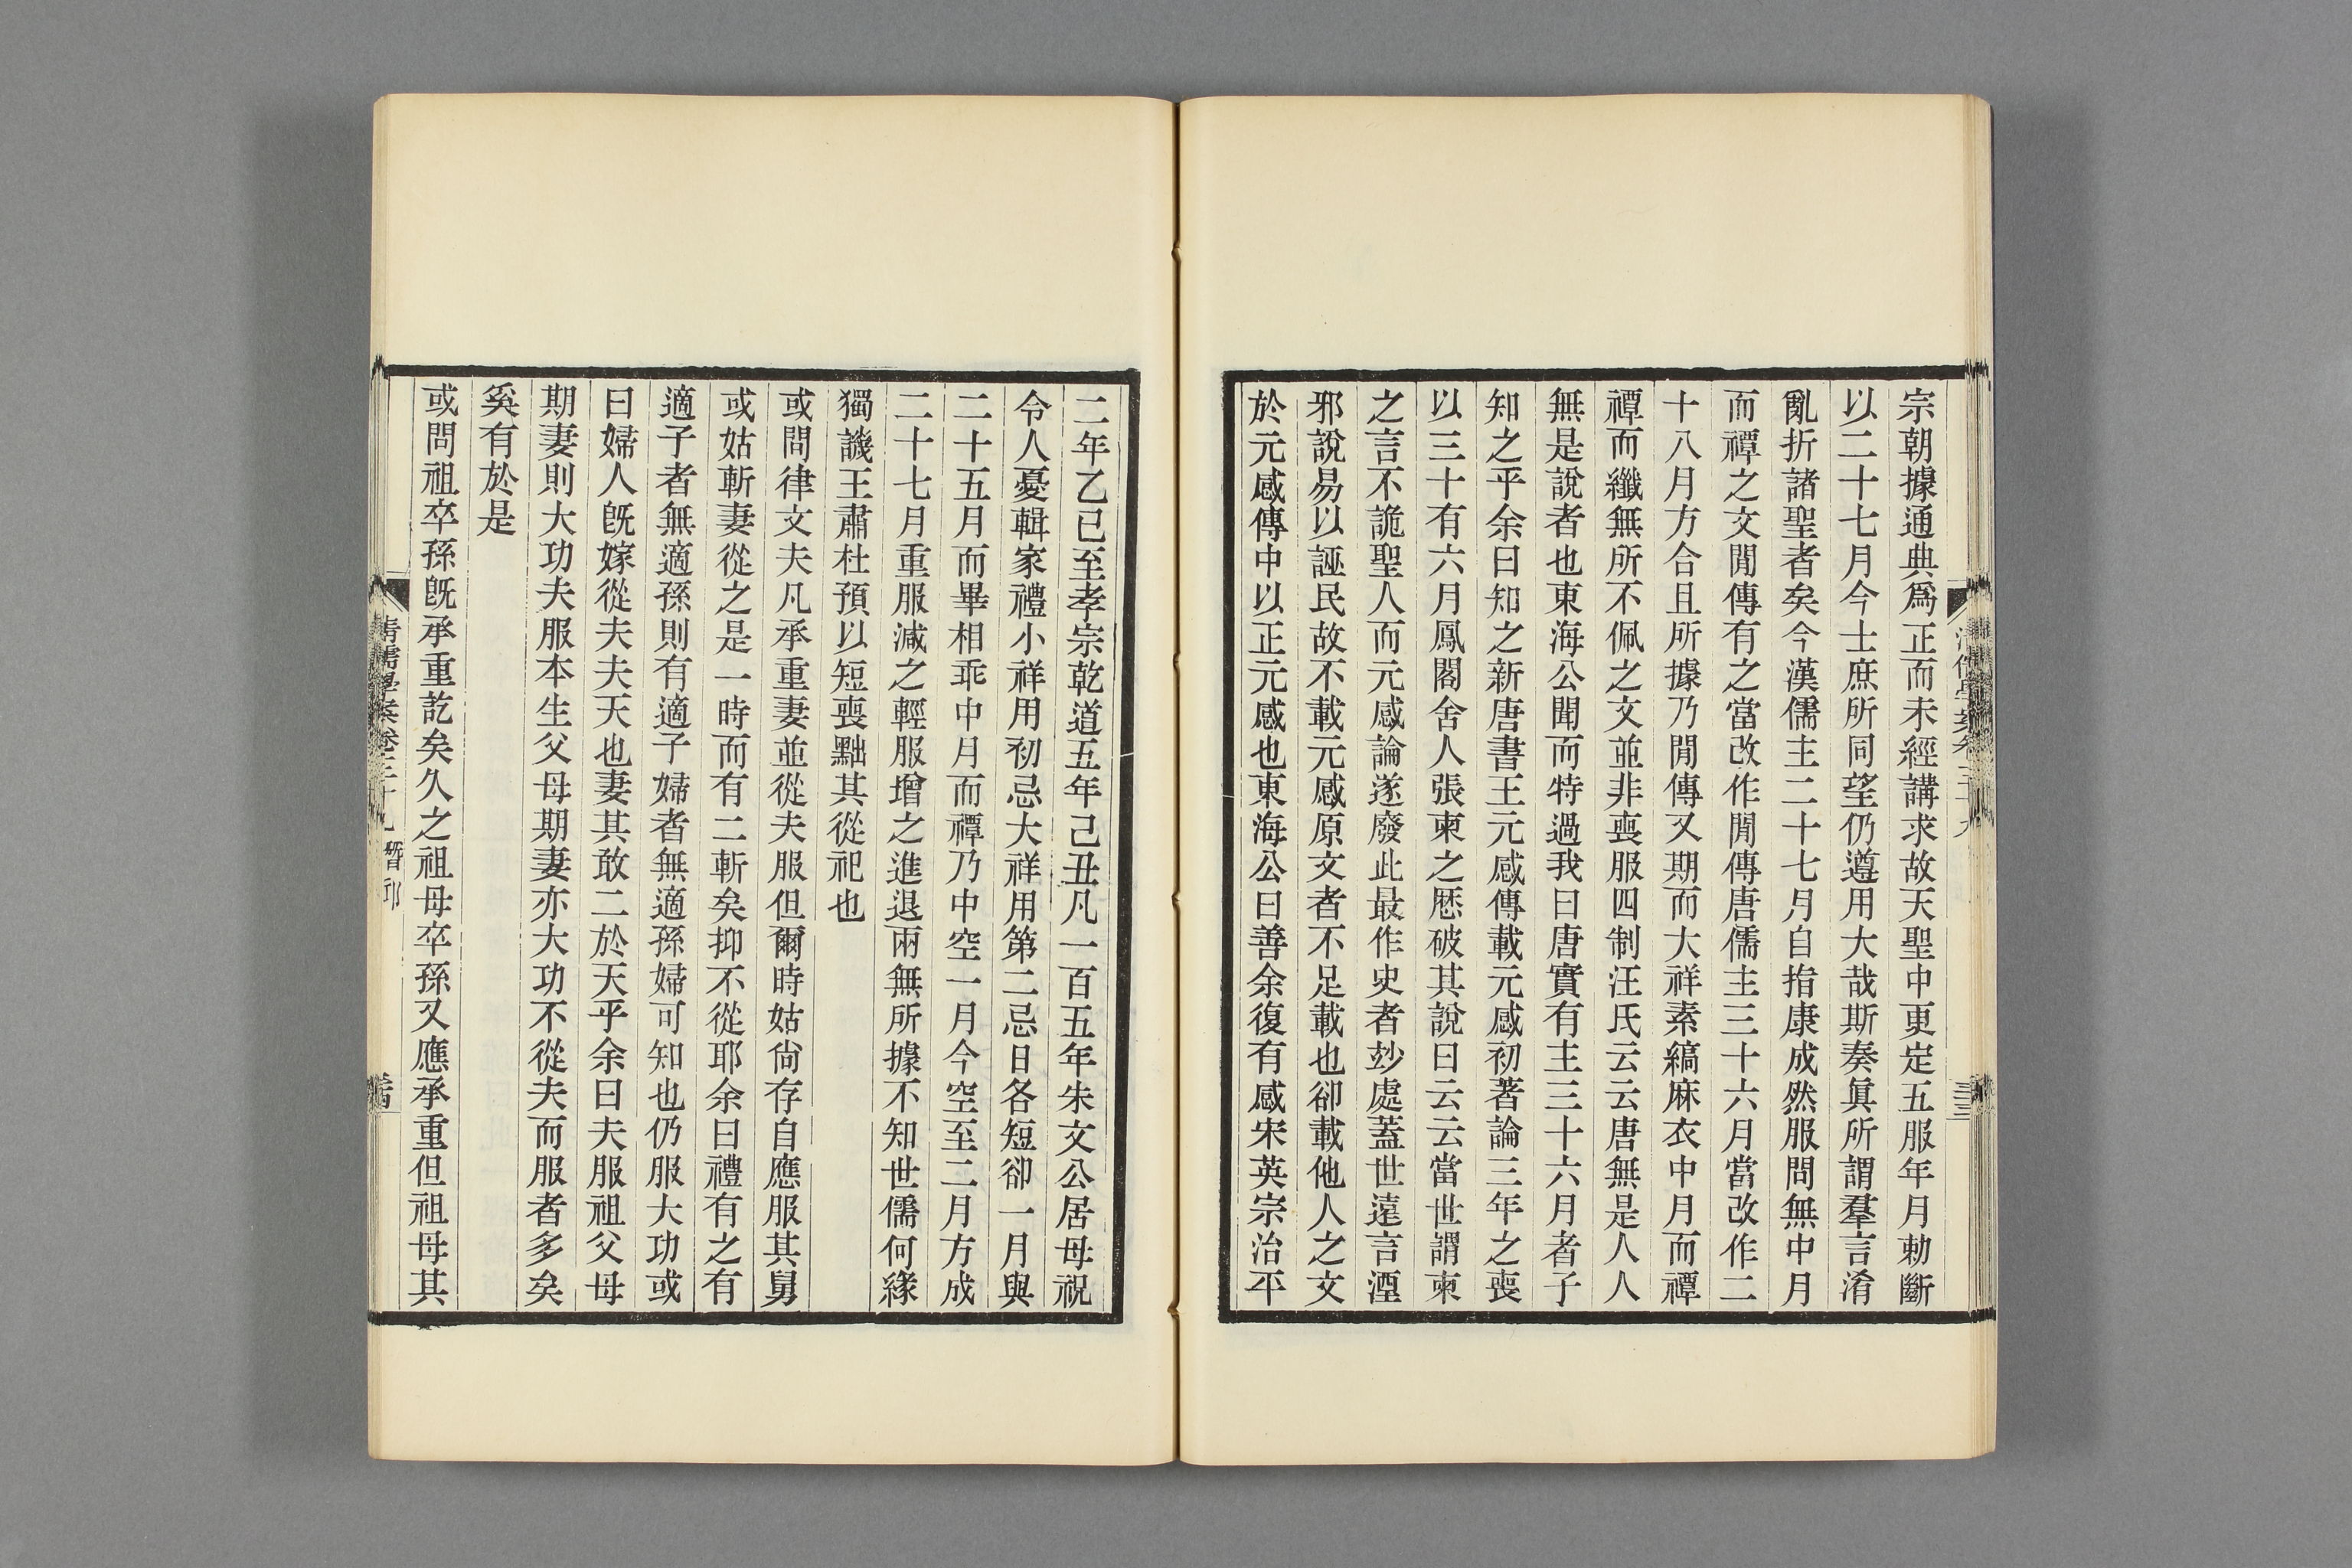 宗朝據通典爲正而未經講求故天聖中更定五服年月勅斷
以二十七月今士庶所同望仍遵用大哉斯奏眞所謂羣言淆
亂折諸聖者矣今漢儒主二十七月自指康成然服問無中月
而禫之文閒傳有之當改作閒傳唐儒主三十六月當改作二
十八月方合且所據乃閒傳又期而大祥素縞麻衣中月而禫
禫而纖無所不佩之文並非喪服四制汪氏云云唐無是人人
無是說者也東海公聞而特過我曰唐實有主三十六月者子
知之乎余曰知之新唐書王元感傳載元感初著論三年之喪
以三十有六月鳳閣舍人張柬之歴破其說曰云云當世謂柬
之言不詭聖人而元感論遂廢此最作史者玅處蓋世遠言湮
邪說易以誣民故不載元感原文者不足載也卻載他人之文
於元感傳中以正元感也東海公曰善余復有感宋英宗治平
二年乙巳至孝宗乾道五年己丑凡一百五年朱文公居母祝
令人憂輯家禮小祥用初忌大祥用第二忌日各短卻一月與
二十五月而畢相乖中月而禫乃中空一月今空至二月方成
二十七月重服減之輕服增之進退兩無所據不知世儒何緣
獨譏王肅杜預以短喪黜其從祀也
或問律文夫凡承重妻並從夫服但爾時姑尙存自應服其舅
或姑斬妻從之是一時而有二斬矣抑不從耶余曰禮有之有
適子者無適孫則有適子婦者無適孫婦可知也仍服大功或
曰婦人旣嫁從夫夫天也妻其敢二於天乎余曰夫服祖父母
期妻則大功夫服本生父母期妻亦大功不從夫而服者多矣
奚有於是
或問祖卒孫旣承重訖矣久之祖母卒孫又應承重但祖母其